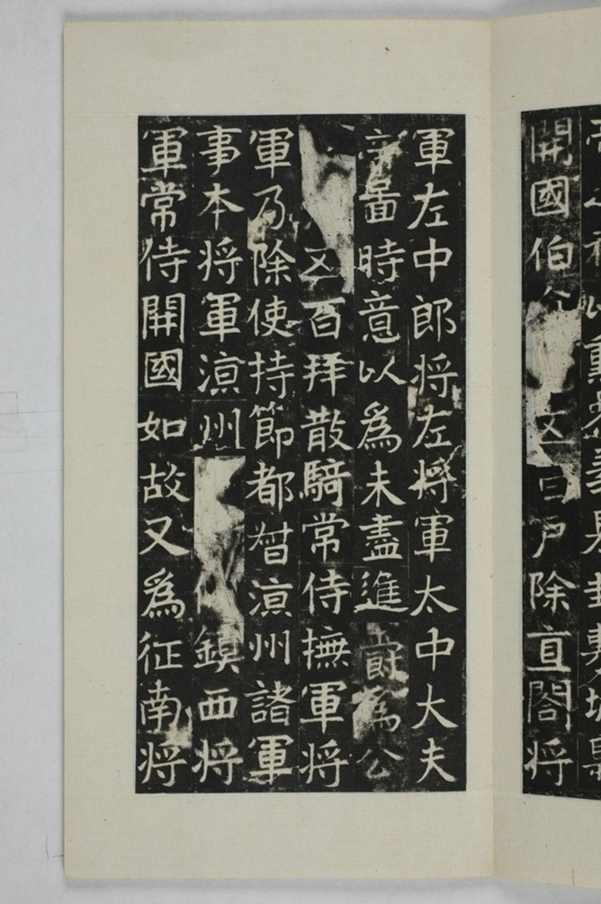 開國伯五百戶除直閤將
軍左中郎將左將軍太中大夫
啚時意以為未盡進爵為公
五百拜散騎常侍撫軍將
軍乃除使持節都督涼州諸軍
事本將軍涼州鎮西將
軍常侍開國如故又為征南將